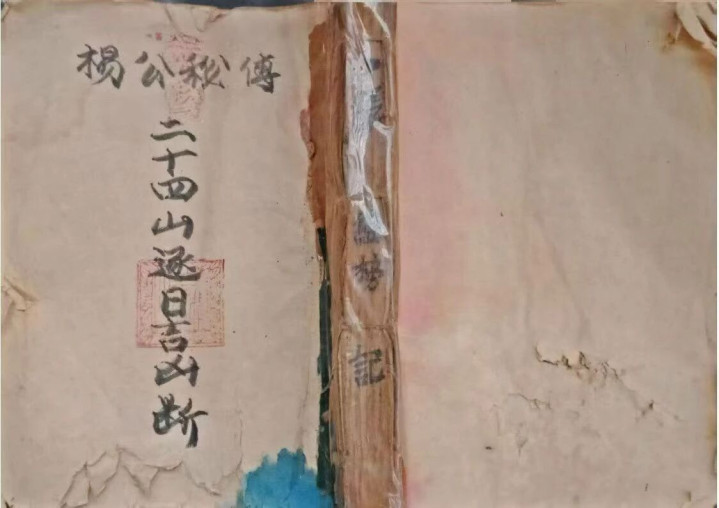 楊公秘傳
二十四山逐日吉凶斷
記